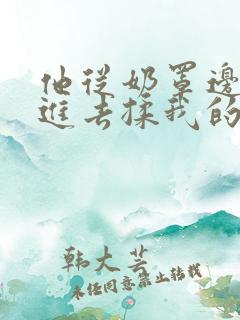 他从奶罩边
进去揉我的
韩大芸
未经同意禁止转载